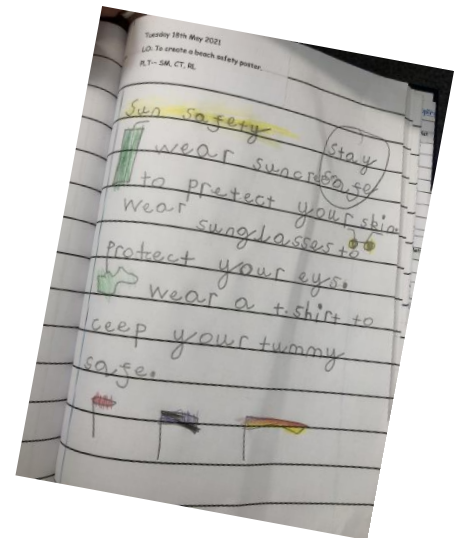 Tuesday 18th May 2021
LO: To create a beach safety poster.
PLT-- SM, CT, RL
Sun safety
Stay safe
wear suncre
to pretect your skin.
wear sunglasses to
protect your eys.
wear a t.shirt to
ceep your tummy
safe.